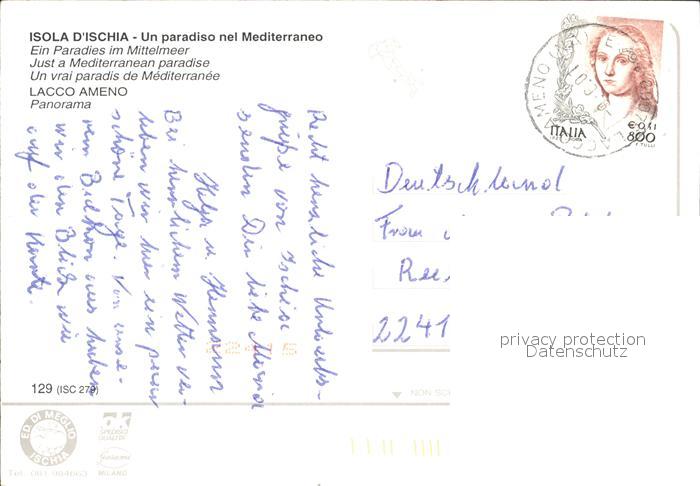 ISOLA D'ISCHIA - Un paradiso nel Mediterraneo
Ein Paradies im Mittelmeer
Just a Mediterranean paradise
Un vrai paradis de Méditerranée
LACCO AMENO
Panorama
ITALIA
€ 0,41
800
Recht herzliche Urlaubs-
grüße von Ischia
senden Dir liebe
Helga u. Hermann
Bei herrlichem Wetter ver-
leben wir hier ein paar
schöne Tage. Von unse-
rem Balkon aus haben
wir den Blick wie
auf der Karte.
Deutschland
Frau
2241
privacy protection
Datenschutz
129 (ISC 279)
NON SC
ED. DI MEGLIO
ISCHIA
Tel. 081 984663
MILANO